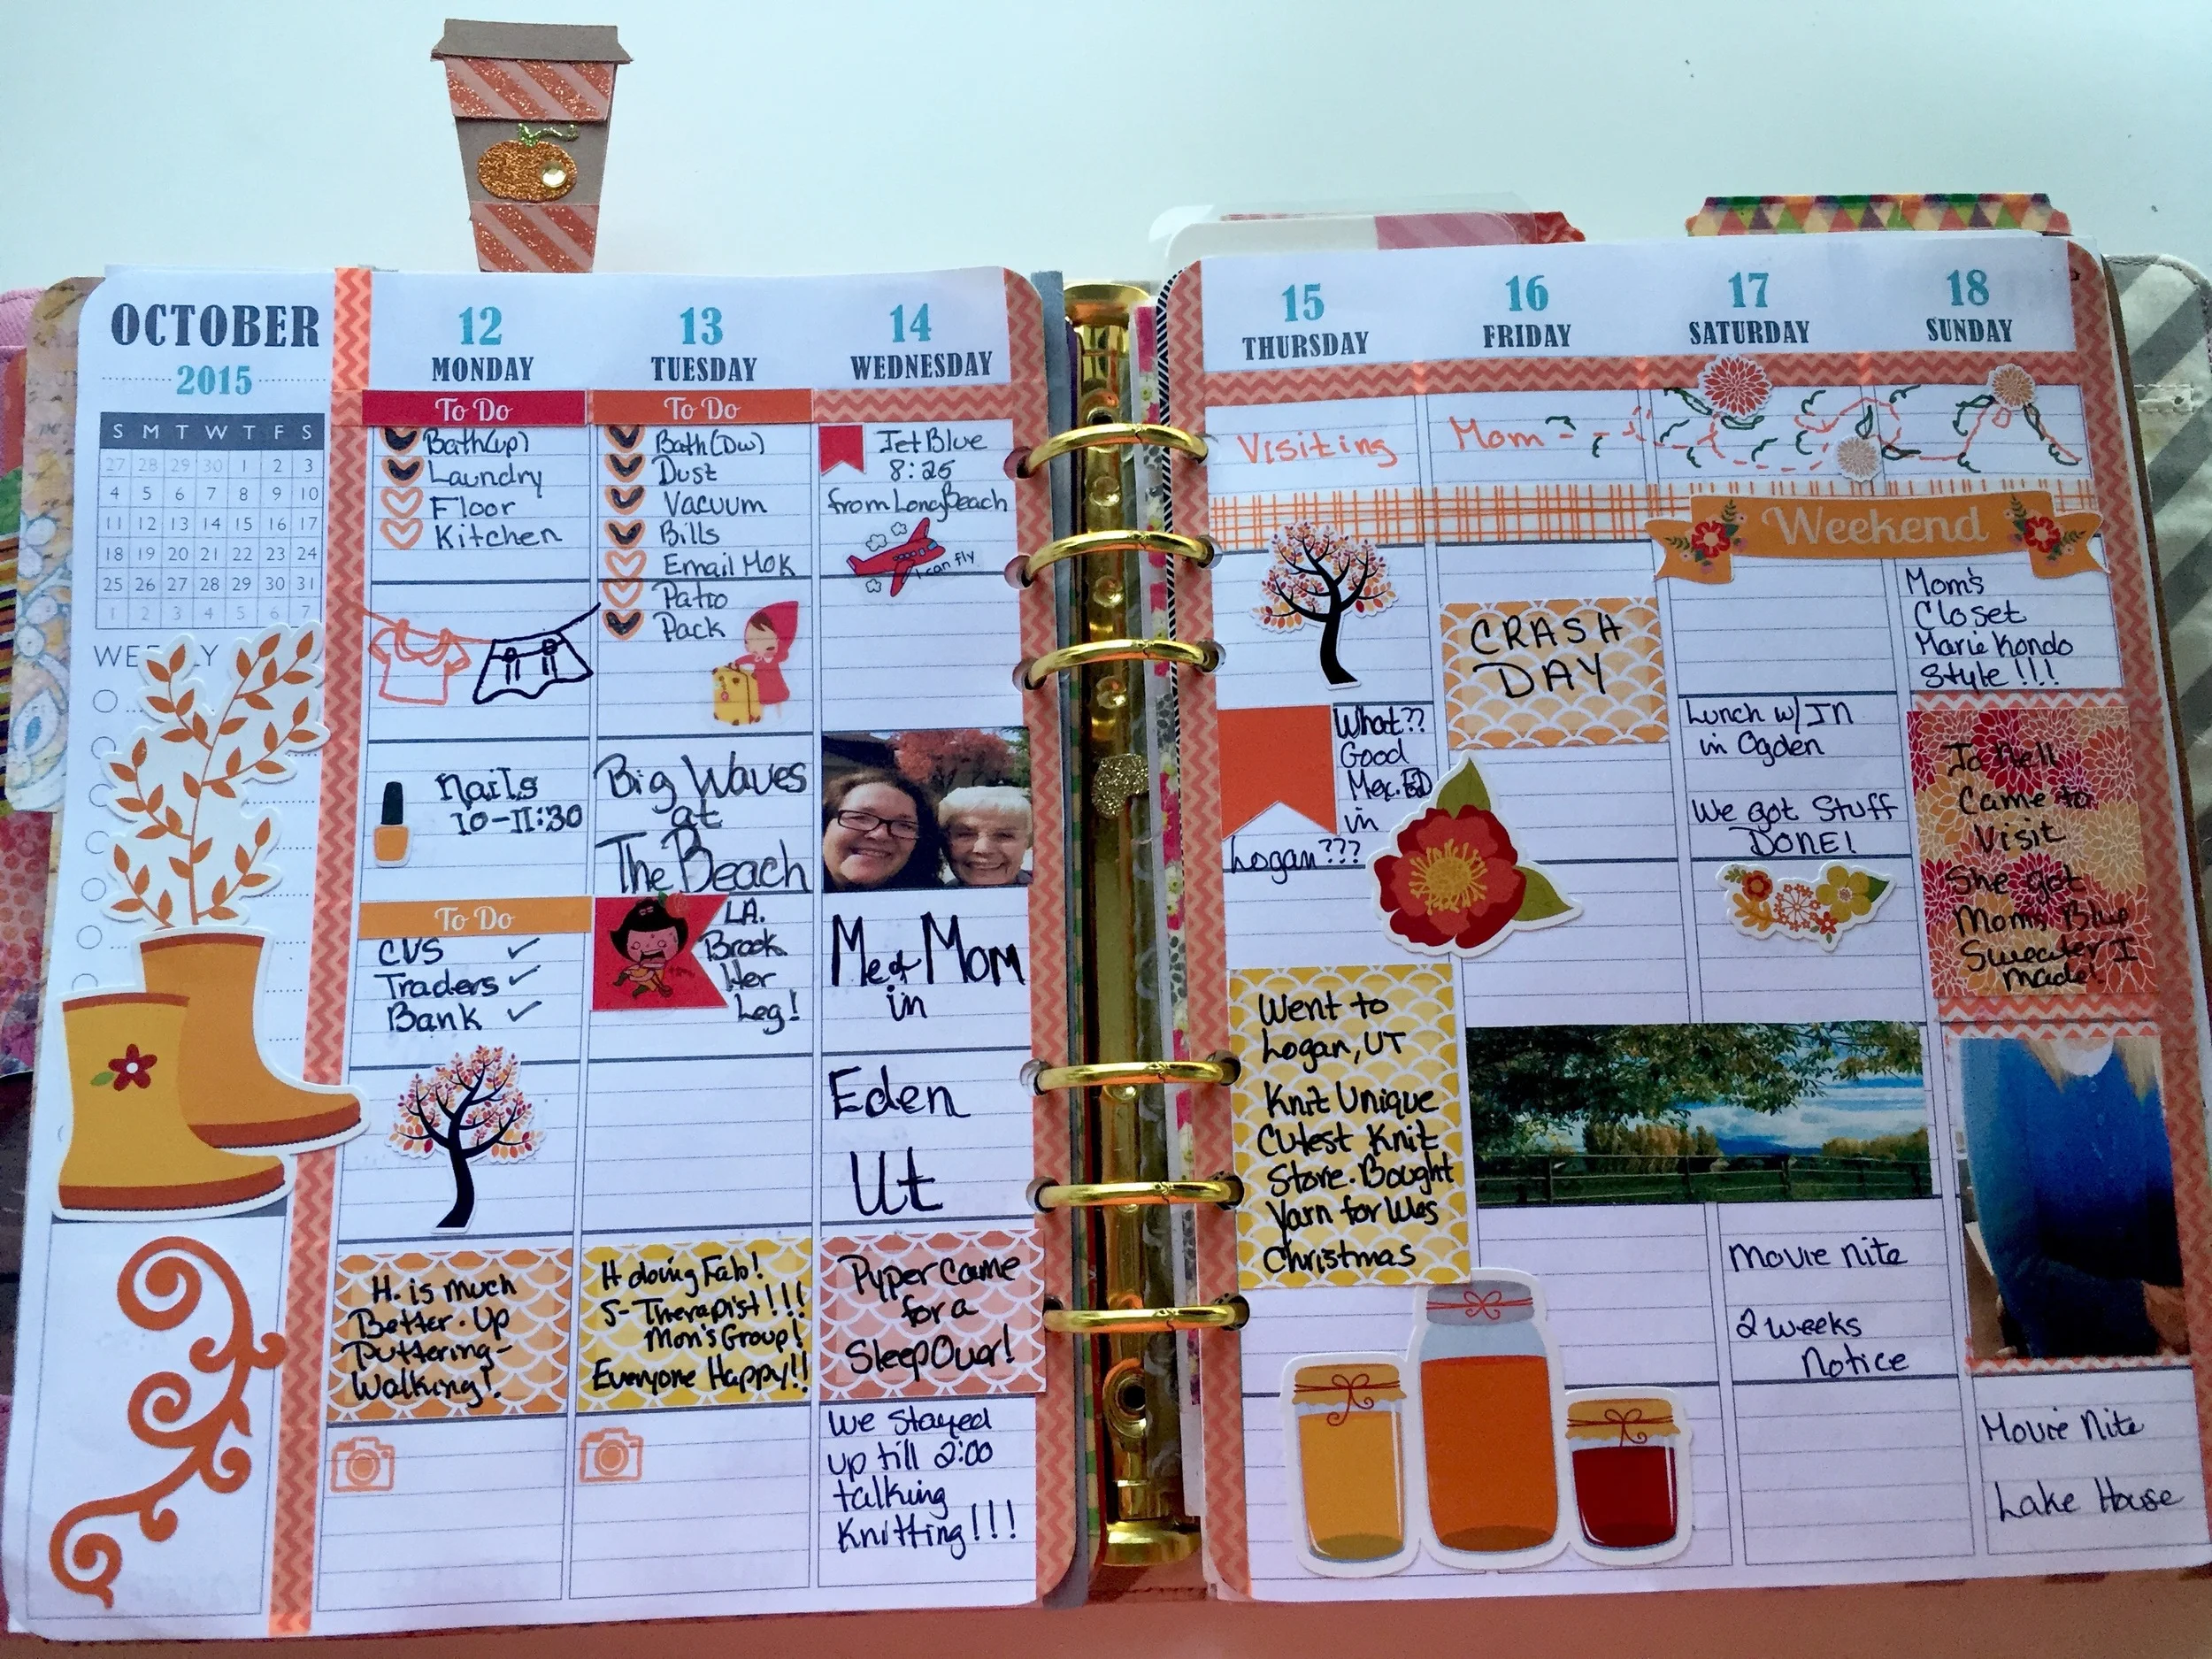 OCTOBER
2015
S M T W T F S
27 28 29 30 1 2 3
4 5 6 7 8 9 10
11 12 13 14 15 16 17
18 19 20 21 22 23 24
25 26 27 28 29 30 31
1 2 3 4 5 6 7
12
MONDAY
To Do
Bath(up)
Laundry
Floor
Kitchen
Nails
10-11:30
To Do
CVS ✓
Traders ✓
Bank ✓
H. is much
Better. Up
Puttering-
Walking!
13
TUESDAY
To Do
Bath(Dw)
Dust
Vacuum
Bills
Email MOK
Patio
Pack
Big Waves
at
The Beach
LA.
Brook
Her
Leg!
H doing Fab!
S-Therapist!!!
Mon's Group!
Everyone Happy!!
14
WEDNESDAY
JetBlue
8:25
from Long Beach
I can fly
Me & Mom
in
Eden
Ut
Pyper Came
for a
SleepOver!
We Stayed
up till 2:00
talking
Knitting!!!
15
THURSDAY
Visiting
What??
Good
Mex.
in
Logan???
Went to
Logan, UT
Knit Unique
Cutest Knit
Store. Bought
Yarn for Wes
Christmas
16
FRIDAY
Mom
CRASH
DAY
17
SATURDAY
Weekend
Lunch w/ JN
in Ogden
We got Stuff
DONE!
Movie Nite
2 weeks
Notice
18
SUNDAY
Mom's
Closet
Marie Kondo
Style!!!
Jo Nell
Came to
Visit
She got
Moms Blue
Sweater I
made!
Movie Nite
Lake House